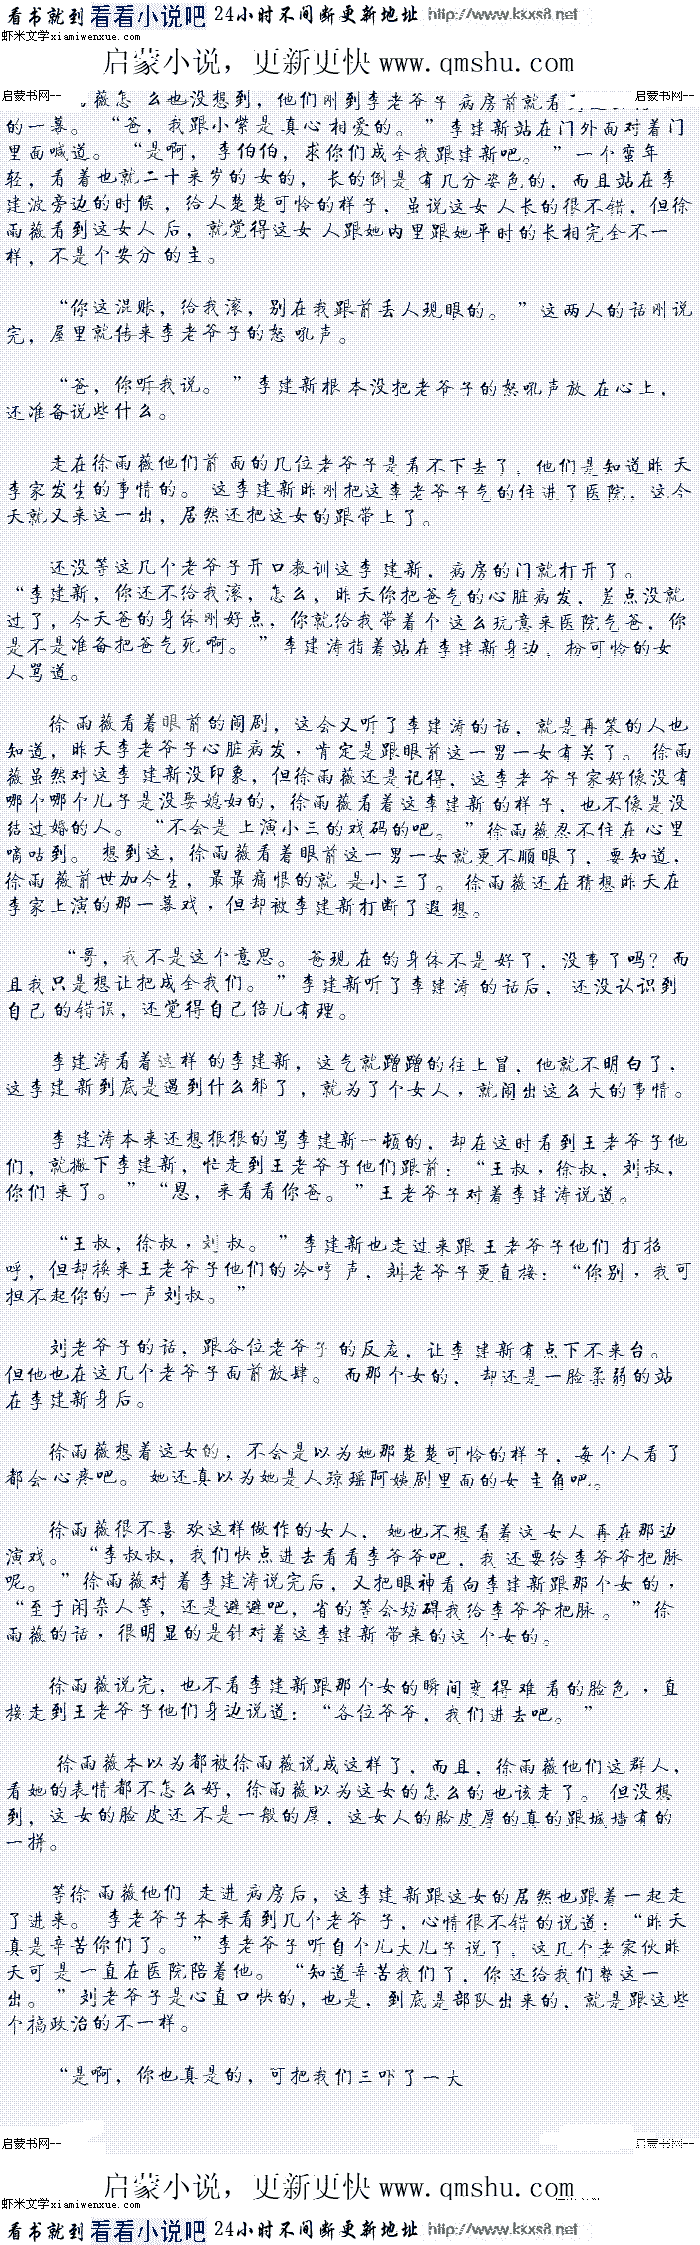 看书就到 看看小说吧 24小时不间断更新地址 http://www.kkxs8.net
虾米文学xiamiwenxue.com
启蒙小说，更新更快 www.qmshu.com
启蒙书网-- 启蒙书网--
薇怎 么也没想到，他们刚到李老爷子 病房前就看
的一幕。 “爸，我跟小紫是 真心 相爱的。 ” 李 建新站在门外面对着门
里面喊道。 “是啊， 李伯伯，求你们成全我跟建新吧。 ” 一个 蛮年
轻，看 着 也就二十来岁的 女的， 长的倒是 有几分姿色的，而且站在李
建波旁边的时候 ，给人楚楚可怜的样子，虽说这女 人长的很不错，但徐
雨薇看到这女人 后，就觉得这女 人跟她内里跟她平时的长相完全不一
样，不是个安分 的主。
“你这混账，给我滚，别在我跟前丢人现眼的。 ” 这 两人的话刚说
完，屋里就传来李老爷子的怒 吼声。
“爸，你听我说。 ” 李建新根 本没把老爷子的怒吼声放 在心上，
还准备说些什么。
走在徐雨薇他们前 面的几位老爷子是看不下去了，他们是知道昨 天
李家发生的事情的。 这李建新昨刚把这李老爷子气的住进了医院，这今
天就又来这一出，居然还把这女的跟带上了。
还没等这几个老爷子开口教训这李 建新，病房的门就打开了。
“李建新，你还不给我滚，怎么，昨天你把爸气的心脏病发，差点没就
过了，今天爸的身体刚好点，你就给我带着个 这么玩意来医院气爸，你
是不是准备把爸气死 啊。 ” 李建涛指着站在李建新身边，扮可怜的女
人骂道。
徐 雨薇看着眼前的闹剧，这会又听了李建涛的话，就是再笨的人也
知道，昨天李老爷子心脏病发，肯定是跟眼前这一男一女有关了。 徐雨
薇虽然对这李 建新没印象，但徐雨薇还是记得，这李老 爷子家好像没有
哪个哪个儿子是没娶媳妇的，徐雨薇看着这李建新 的样子，也不像是没
结过婚的人。 “不会是 上演小三的戏码的吧。 ” 徐雨薇忍不住在 心里
嘀咕到。 想到这，徐雨薇看着眼前这一男一女就更不顺眼了，要知道，
徐雨 薇前世加今生，最最痛恨的就 是小三了。 徐雨薇还在猜想昨天在
李家上演的那一幕戏，但却被李建新打断了遐 想。
“哥，我不是这个意思。 爸现 在 的身体不是 好了，没事了吗？而
且我只是想让把成全我们。 ” 李建新听了李建涛 的话后， 还没认识到
自己 的错误，还觉得自己倍儿有理。
李建涛看着这样 的李建新，这气就蹭蹭的往上冒，他就不明白了，
这李建 新到底是遇到什么邪了 ，就为了个女人，就闹出这么大的事情。
李 建涛本来还想狠狠的骂李建新一顿的，却在这时看到王老爷子他
们，就撇下李建新，忙走到王老爷子他们跟前： “王叔，徐叔，刘叔，
你们 来了。 ” “恩，来看看你爸。 ” 王老爷子对着李建涛说道。
“王叔，徐叔，刘叔。 ” 李建新也走过来跟 王老爷子他们 打招
呼，但却换来王老爷子他们的 冷哼 声，刘老爷子更直接： “你别，我可
担不起你的 一声刘叔。 ”
刘老爷子的话，跟各位老爷子 的反应，让李 建新有点下不来台。
但他也在这几个老爷子面前放肆。 而那个女的， 却还是一脸柔弱的站
在李建新身后。
徐雨薇想着这女的，不会是以为她那楚楚可怜的样子，每个人看了
都会 心疼吧。 她还真以为她是人琼瑶阿姨剧里面的女 主角吧。
徐雨薇很不喜 欢这样做作的女人， 她也不想看着这 女人 再在那边
演戏。 “李叔叔，我们快点进去看看李爷爷吧 ，我 还要给李爷爷把 脉
呢。 ” 徐雨薇对 着李建涛说完后，又把眼神看向李建新跟那个女的 ，
“至于闲杂人等，还是避避吧，省的等会妨碍我给李爷爷把脉 。 ” 徐
雨薇的话，很明显的是针对着这李建新 带来的这 个女的。
徐雨薇说完，也不看李建新跟那个女的瞬间变得 难 看的脸色 ，直
接走到王老爷子他们身边说道： “各位爷爷，我们进去吧。 ”
徐雨薇本以为都被徐雨薇说成这样了，而且，徐雨薇他们这群人，
看她的表情都不怎么好，徐雨薇以为这女的怎么的 也该走了。 但没想
到，这 女的脸 皮还 不是一般的厚，这女人的脸皮厚的真的跟城墙有的
一拼。
等徐 雨薇他们 走进 病房后，这李建 新跟这女的居然也跟着一起走
了进来。 李老爷子本来看到几个老爷 子，心情很不错 的说道： “昨天
真是辛苦你们了。 ” 李老爷子 听自个儿大儿子 说了，这几个老家伙昨
天可 是 一直在医院陪着他。 “知道辛苦我们了，你 还给我们整这一
出。 ” 刘老爷子是心直口快的，也是，到底是部队出来的，就是跟这些
个搞政治的不一样。
“是啊，你也真是的，可把我们三吓了一大
启蒙书网-- 启蒙书网--
启蒙小说，更新更快 www.qmshu.com
虾米文学xiamiwenxue.com
看书就到 看看小说吧 24小时不间断更新地址 http://www.kkxs8.net